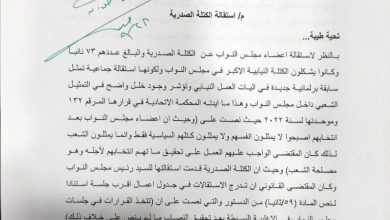 م/ استقالة الكتلة الصدرية
تحية طيبة...
بالنظر لاستقالة اعضاء مجلس النواب عن الكتلة الصدرية والبالغ عددهم ٧٣ نائبا
وكانوا يشكلون الكتلة النيابية الأكبر في مجلس النواب ولكونها استقالة جماعية تمثل
سابقة برلمانية جديدة في اليات العمل النيابي وتؤشر وجود خلل واضح في التمثيل
الشعبي داخل مجلس النواب وهذا ما ايدته المحكمة الاتحادية في قرارها المرقم ٢٣٢
وموحدتها لسنة ٢٠٢٢ حيث نصت على (وحيث ان اعضاء مجلس النواب بعد
انتخابهم اصبحوا لا يمثلون انفسهم ولا يمثلون كتلهم السياسية فقط وانما يمثلون الشعب
لذلك كان المقتضى الواجب عليهم العمل على تحقيق ما تم انتخابهم لأجله وهو
مصلحة الشعب) وحيث ان الكتلة الصدرية قدمت استقالتها للسيد رئيس مجلس النواب
وكان المقتضى القانوني ان تدرج الاستقالات في جدول اعمال اقرب جلسة استنادا
لنص المادة (٥٩/ثانيا) من الدستور والتي نصت على ان (تتخذ القرارات في جلسات